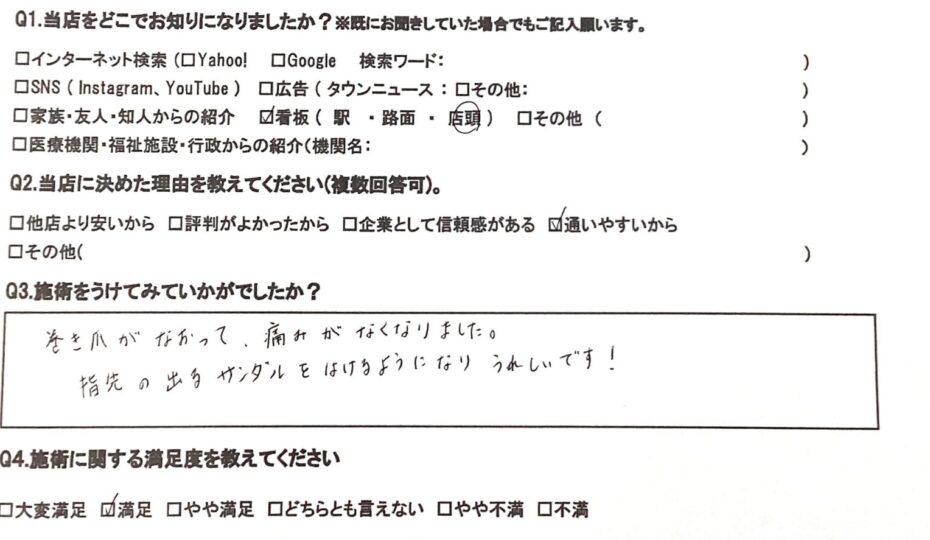 Q1.当店をどこでお知りになりましたか？※既にお聞きしていた場合でもご記入願います。
□インターネット検索（□Yahoo!　□Google　検索ワード：　）
□SNS（Instagram、YouTube）　□広告（タウンニュース：□その他：　）
□家族・友人・知人からの紹介　☑看板（駅　・路面　・　店頭）　□その他（　）
□医療機関・福祉施設・行政からの紹介（機関名：　）
Q2.当店に決めた理由を教えてください（複数回答可）。
□他店より安いから　□評判がよかったから　□企業として信頼感がある　☑通いやすいから
□その他（　）
Q3.施術をうけてみていかがでしたか？
巻き爪がなおって、痛みがなくなりました。
指先の出るサンダルをはけるようになりうれしいです！
Q4.施術に関する満足度を教えてください
□大変満足　☑満足　□やや満足　□どちらとも言えない　□やや不満　□不満